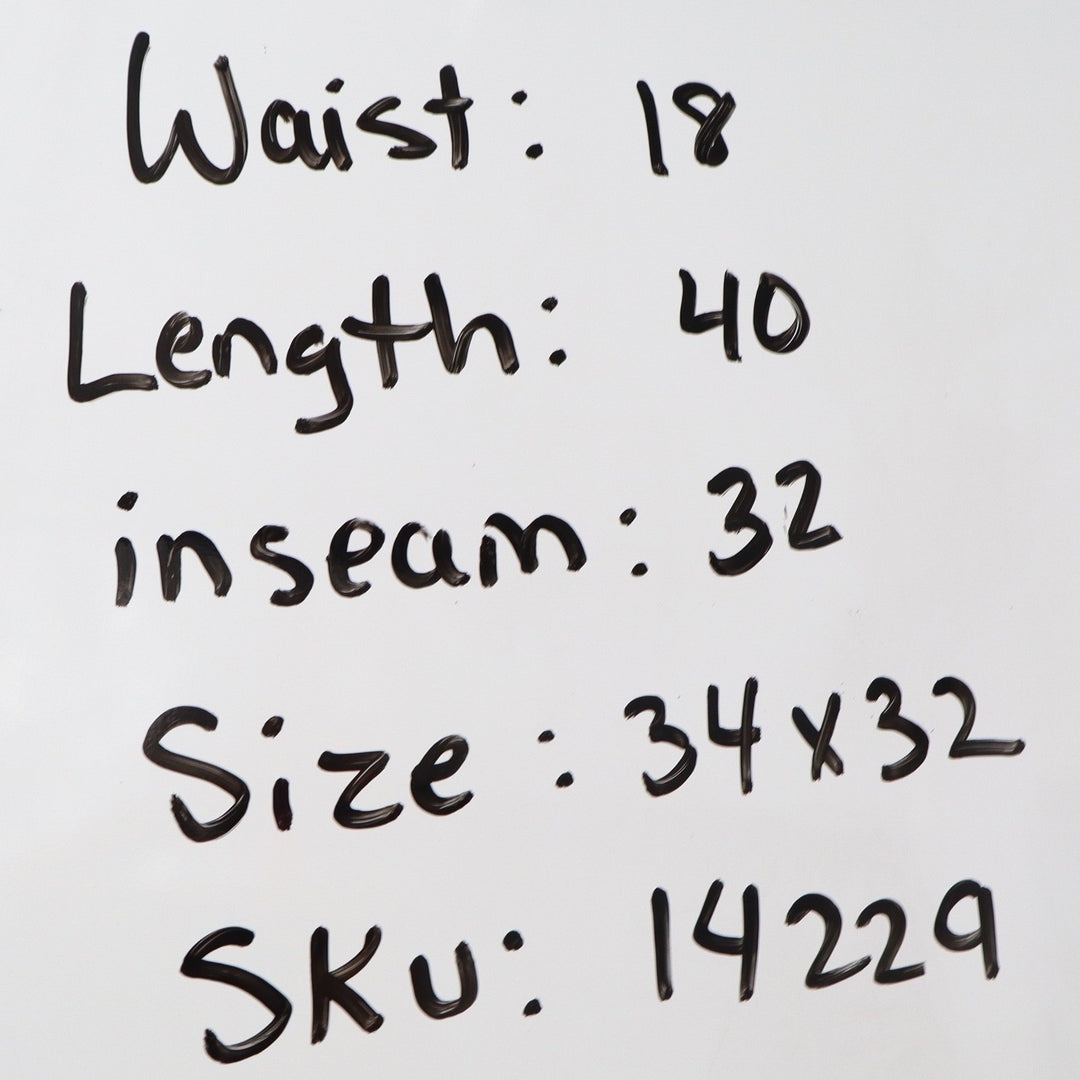 Waist: 18
Length: 40
inseam: 32
Size: 34x32
SKU: 14229